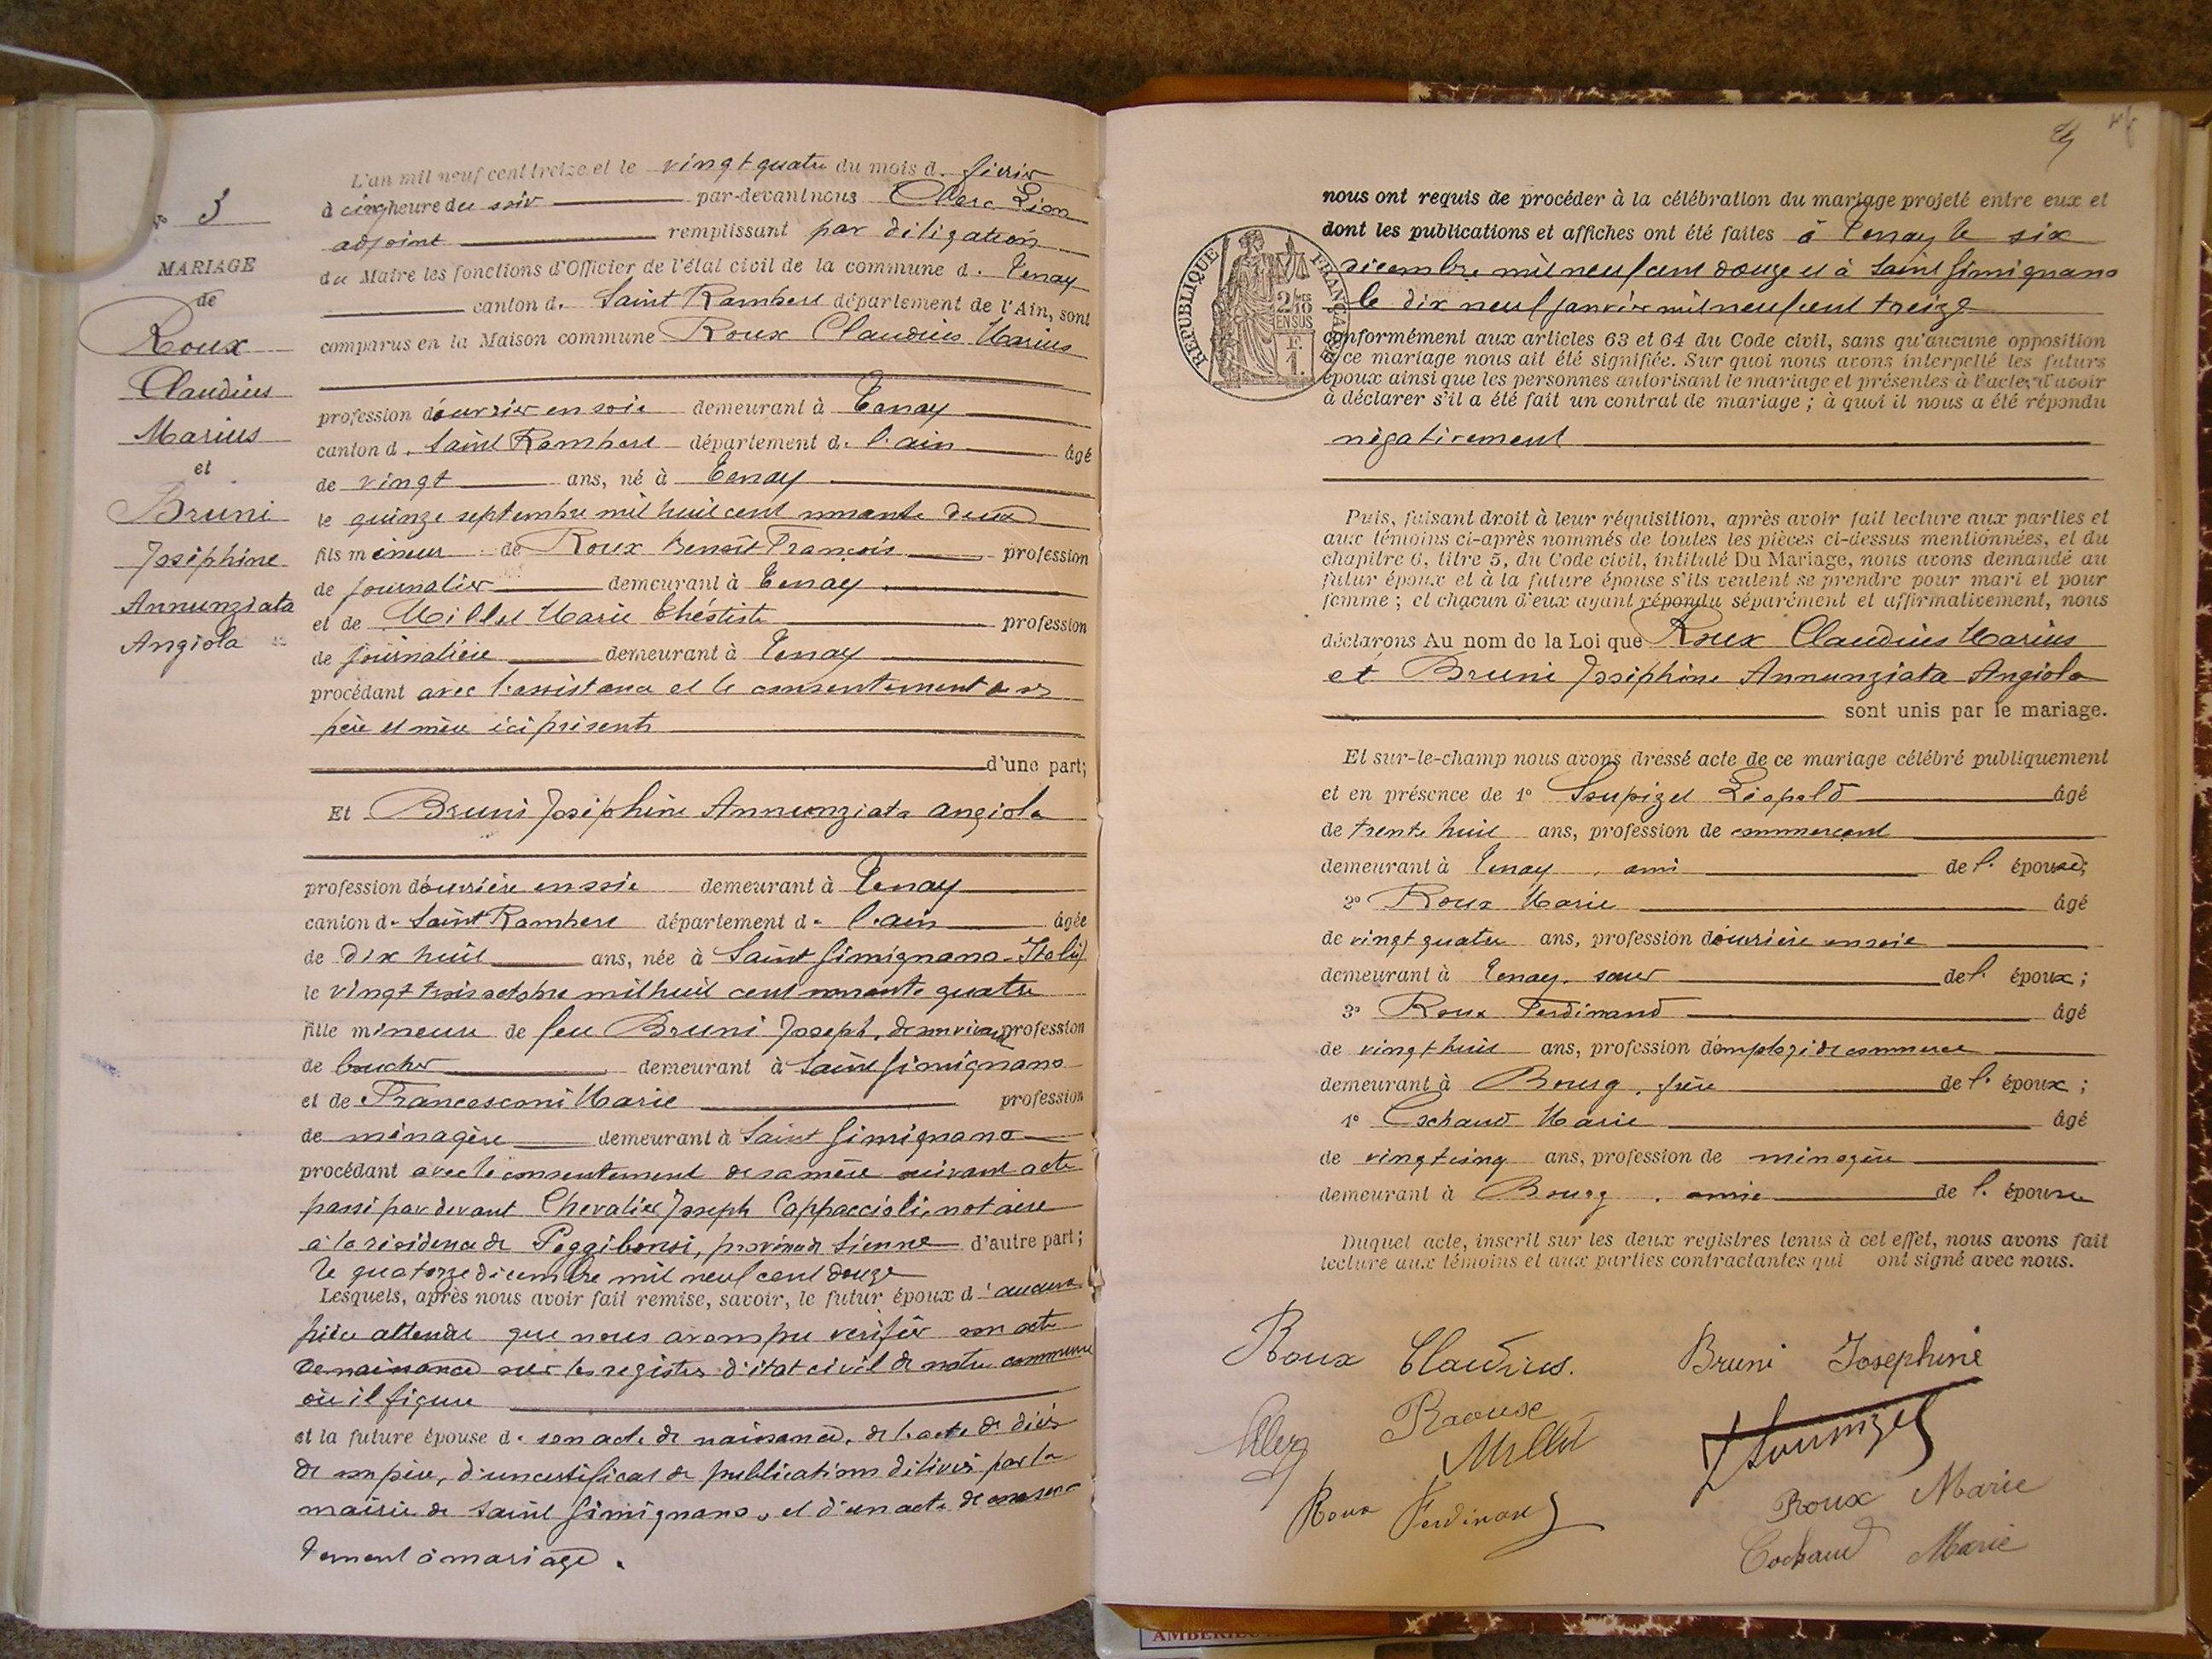 N° 3
MARIAGE
de
Roux
Claudius
Marius
et
Bruni
Joséphine
Annunziata
Angiola
L'an mil neuf cent treize et le vingt quatre du mois d. février
à cinq heure du soir par-devant nous Clerc Léon
adjoint remplissant par délégation
du Maire les fonctions d'Officier de l'état civil de la commune d. Tenay
canton d. Saint Rambert département de l'Ain, sont
comparus en la Maison commune Roux Claudius Marius
profession d'ouvrier en soie demeurant à Tenay
canton d. Saint Rambert département d. l'ain âgé
de vingt ans, né à Tenay
le quinze septembre mil huit cent nonante deux
fils mineur de Roux Benoît François profession
de journalier demeurant à Tenay
et de Millet Marie profession
de journalière demeurant à Tenay
procédant avec l'assistance et le consentement de ses
père et mère ici présents
d'une part;
Et Bruni Joséphine Annunziata angiola
profession d'ouvrière en soie demeurant à Tenay
canton d. Saint Rambert département d. l'ain âgée
de dix huit ans, née à Saint Gimignano-Italie)
le vingt trois octobre mil huit cent nonante quatre
fille mineure de feu Bruni Joseph, de son vivant profession
de boucher demeurant à Saint Gimignano
et de Francesconi Marie profession
de ménagère demeurant à Saint Gimignano
procédant avec le consentement de sa mère suivant acte
passé par devant Chevalier Joseph Cappaccioli, notaire
à la résidence de Poggibonsi, province de Sienne d'autre part;
le quatorze décembre mil neuf cent douze
Lesquels, après nous avoir fait remise, savoir, le futur époux d'aucune
pièce attendu que nous avons pu vérifier son acte
de naissance sur les registres d'état civil de notre commune
où il figure
et la future épouse d. son acte de naissance, de l'acte de décès
de son père, d'un certificat de publications délivré par la
mairie de Saint Gimignano, et d'un acte de consen-
tement à mariage.
nous ont requis de procéder à la célébration du mariage projeté entre eux et
dont les publications et affiches ont été faites à Tenay le six
décembre mil neuf cent douze et à Saint Gimignano
le dix neuf janvier mil neuf cent treize
REPUBLIQUE FRANÇAISE
2/10
EN SUS
F.
1.
conformément aux articles 63 et 64 du Code civil, sans qu'aucune opposition
à ce mariage nous ait été signifiée. Sur quoi nous avons interpellé les futurs
époux ainsi que les personnes autorisant le mariage et présentes à l'acte, d'avoir
à déclarer s'il a été fait un contrat de mariage ; à quoi il nous a été répondu
négativement
Puis, faisant droit à leur réquisition, après avoir fait lecture aux parties et
aux témoins ci-après nommés de toutes les pièces ci-dessus mentionnées, et du
chapitre 6, titre 5, du Code civil, intitulé Du Mariage, nous avons demandé au
futur époux et à la future épouse s'ils veulent se prendre pour mari et pour
femme ; et chacun d'eux ayant répondu séparément et affirmativement, nous
déclarons Au nom de la Loi que Roux Claudius Marius
et Bruni Joséphine Annunziata Angiola
sont unis par le mariage.
Et sur-le-champ nous avons dressé acte de ce mariage célébré publiquement
et en présence de 1° Soupizet Léopold âgé
de trente huit ans, profession de commerçant
demeurant à Tenay, ami de l. épouse;
2° Roux Marie âgé
de vingt quatre ans, profession d'ouvrière en soie
demeurant à Tenay, sœur de l. époux ;
3° Roux Ferdinand âgé
de vingt huit ans, profession d'employé de commerce
demeurant à Bourg, frère de l. époux ;
4° Cochaud Marie âgé
de vingt cinq ans, profession de ménagère
demeurant à Bourg, amie de l. épouse
Duquel acte, inscrit sur les deux registres tenus à cet effet, nous avons fait
lecture aux témoins et aux parties contractantes qui ont signé avec nous.
Roux Claudius. Bruni Josephine
Clerc Millet
Roux Ferdinand Roux Marie
Cochaud Marie